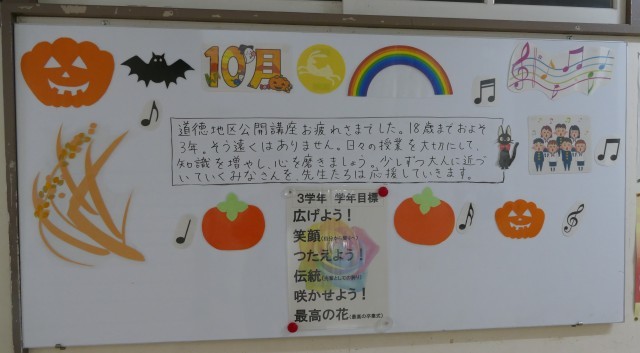 10月
道徳地区公開講座お疲れさまでした。18歳までおよそ
3年。そう遠くはありません。日々の授業を大切にして、
知識を増やし、心を磨きましょう。少しずつ大人に近づ
いていくみなさんを、先生たちは応援していきます。
3学年 学年目標
広げよう！
笑顔
つたえよう！
伝統
咲かせよう！
最高の花(最高の卒業式)